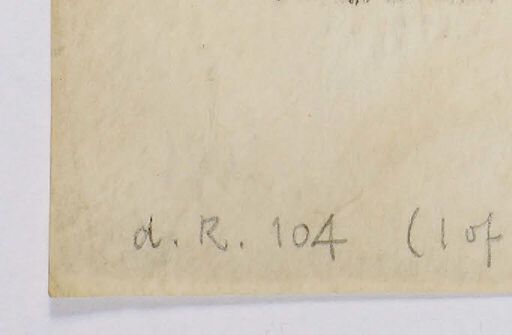 d. R. 104 (1 of